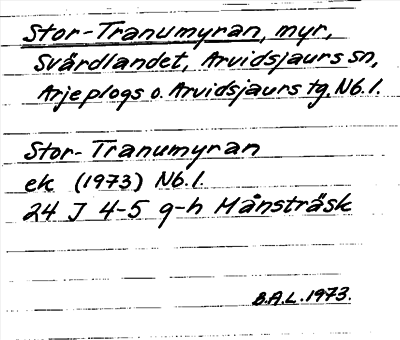 Stor-Tranumyran, myr,
Svärdlandet, Arvidsjaurs sn,
Arjeplogs o. Arvidsjaurs tg. Nb.l.
Stor-Tranumyran
ek (1973) Nb.l.
24 J 4-5 g-h Månsträsk
B.A.L. 1973.